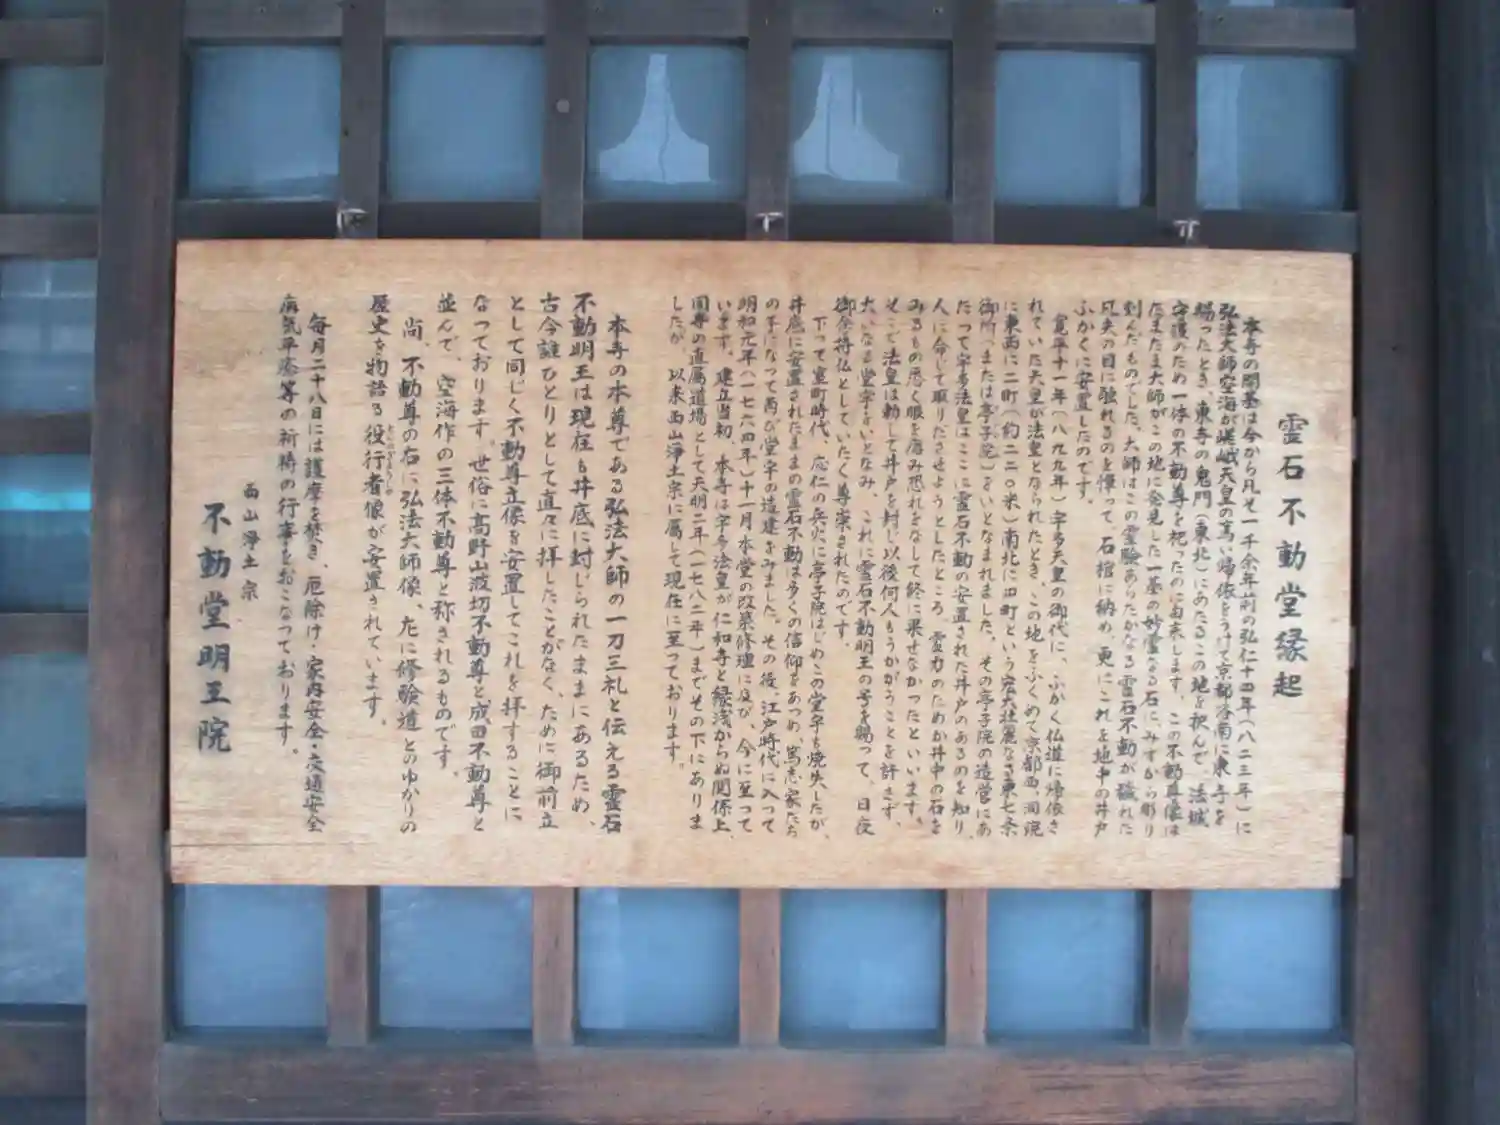 霊石不動堂縁起
本寺の開基は今から凡そ一千余年前の弘仁十四年(八二三年)に
弘法大師空海が嵯峨天皇の高い帰依をうけて京都洛南に東寺を
賜ったとき、東寺の鬼門(東北)にあたるこの地を択んで、法城
守護のため一体の不動尊を祀ったのに由来します。この不動尊像は
たまたま大師がこの地に発見した一基の妙霊なる石にみずから彫り
刻んだものでした。大師はこの霊験あらたかなる霊石不動が穢れた
凡夫の目に触れるのを憚って、石棺に納め、更にこれを地中の井戸
ふかくに安置したのです。
寛平十一年(八九九年)宇多天皇の御代に、ふかく仏道に帰依さ
れていた天皇が法皇となられたとき、この地をふくめて京都西洞院
に東西に二町(約二二〇米)南北に四町という宏大壮麗なる東七条
御所(または亭子院)をいとなまれました。その亭子院の造営にあ
たって宇多法皇はここに霊石不動の安置された井戸のあるのを知り、
人に命じて取りださせようとしたところ、霊力のためか井中の石を
みるもの悉く眼を痛み恐れをなして終に果せなかったといいます。
そこで法皇は勅して井戸を封じ以後何人もうかがうことを許さず、
大いなる堂宇をいとなみ、これに霊石不動明王の号を賜って、日夜
御念持仏としていたく尊崇されたのです。
下って室町時代、応仁の兵火に亭子院はじめこの堂宇も焼失したが、
井底に安置されたままの霊石不動は多くの信仰をあつめ、篤志家たち
の手になって再び堂宇の造建をみました。その後、江戸時代に入って
明和元年(一七六四年)十一月本堂の改築修理に及び、今に至って
います。建立当初、本寺は宇多法皇が仁和寺と縁浅からぬ関係上、
同寺の直属道場として天明二年(一七八二年)までその下にありま
したが、以来西山浄土宗に属して現在に至っております。
本寺の本尊である弘法大師の一刀三礼と伝える霊石
不動明王は現在も井底に封じられたままにあるため、
古今誰ひとりとして直々に拝したことがなく、ために御前立
として同じく不動尊立像を安置してこれを拝することに
なっております。世俗に高野山波切不動尊と成田不動尊と
並んで、空海作の三体不動尊と称されるものです。
尚、不動尊の右に弘法大師像、左に修験道とのゆかりの
歴史を物語る役行者像が安置されています。
毎月二十八日には護摩を焚き、厄除け・家内安全・交通安全
病気平癒等の祈祷の行事をおこなっております。
西山浄土宗
不動堂明王院